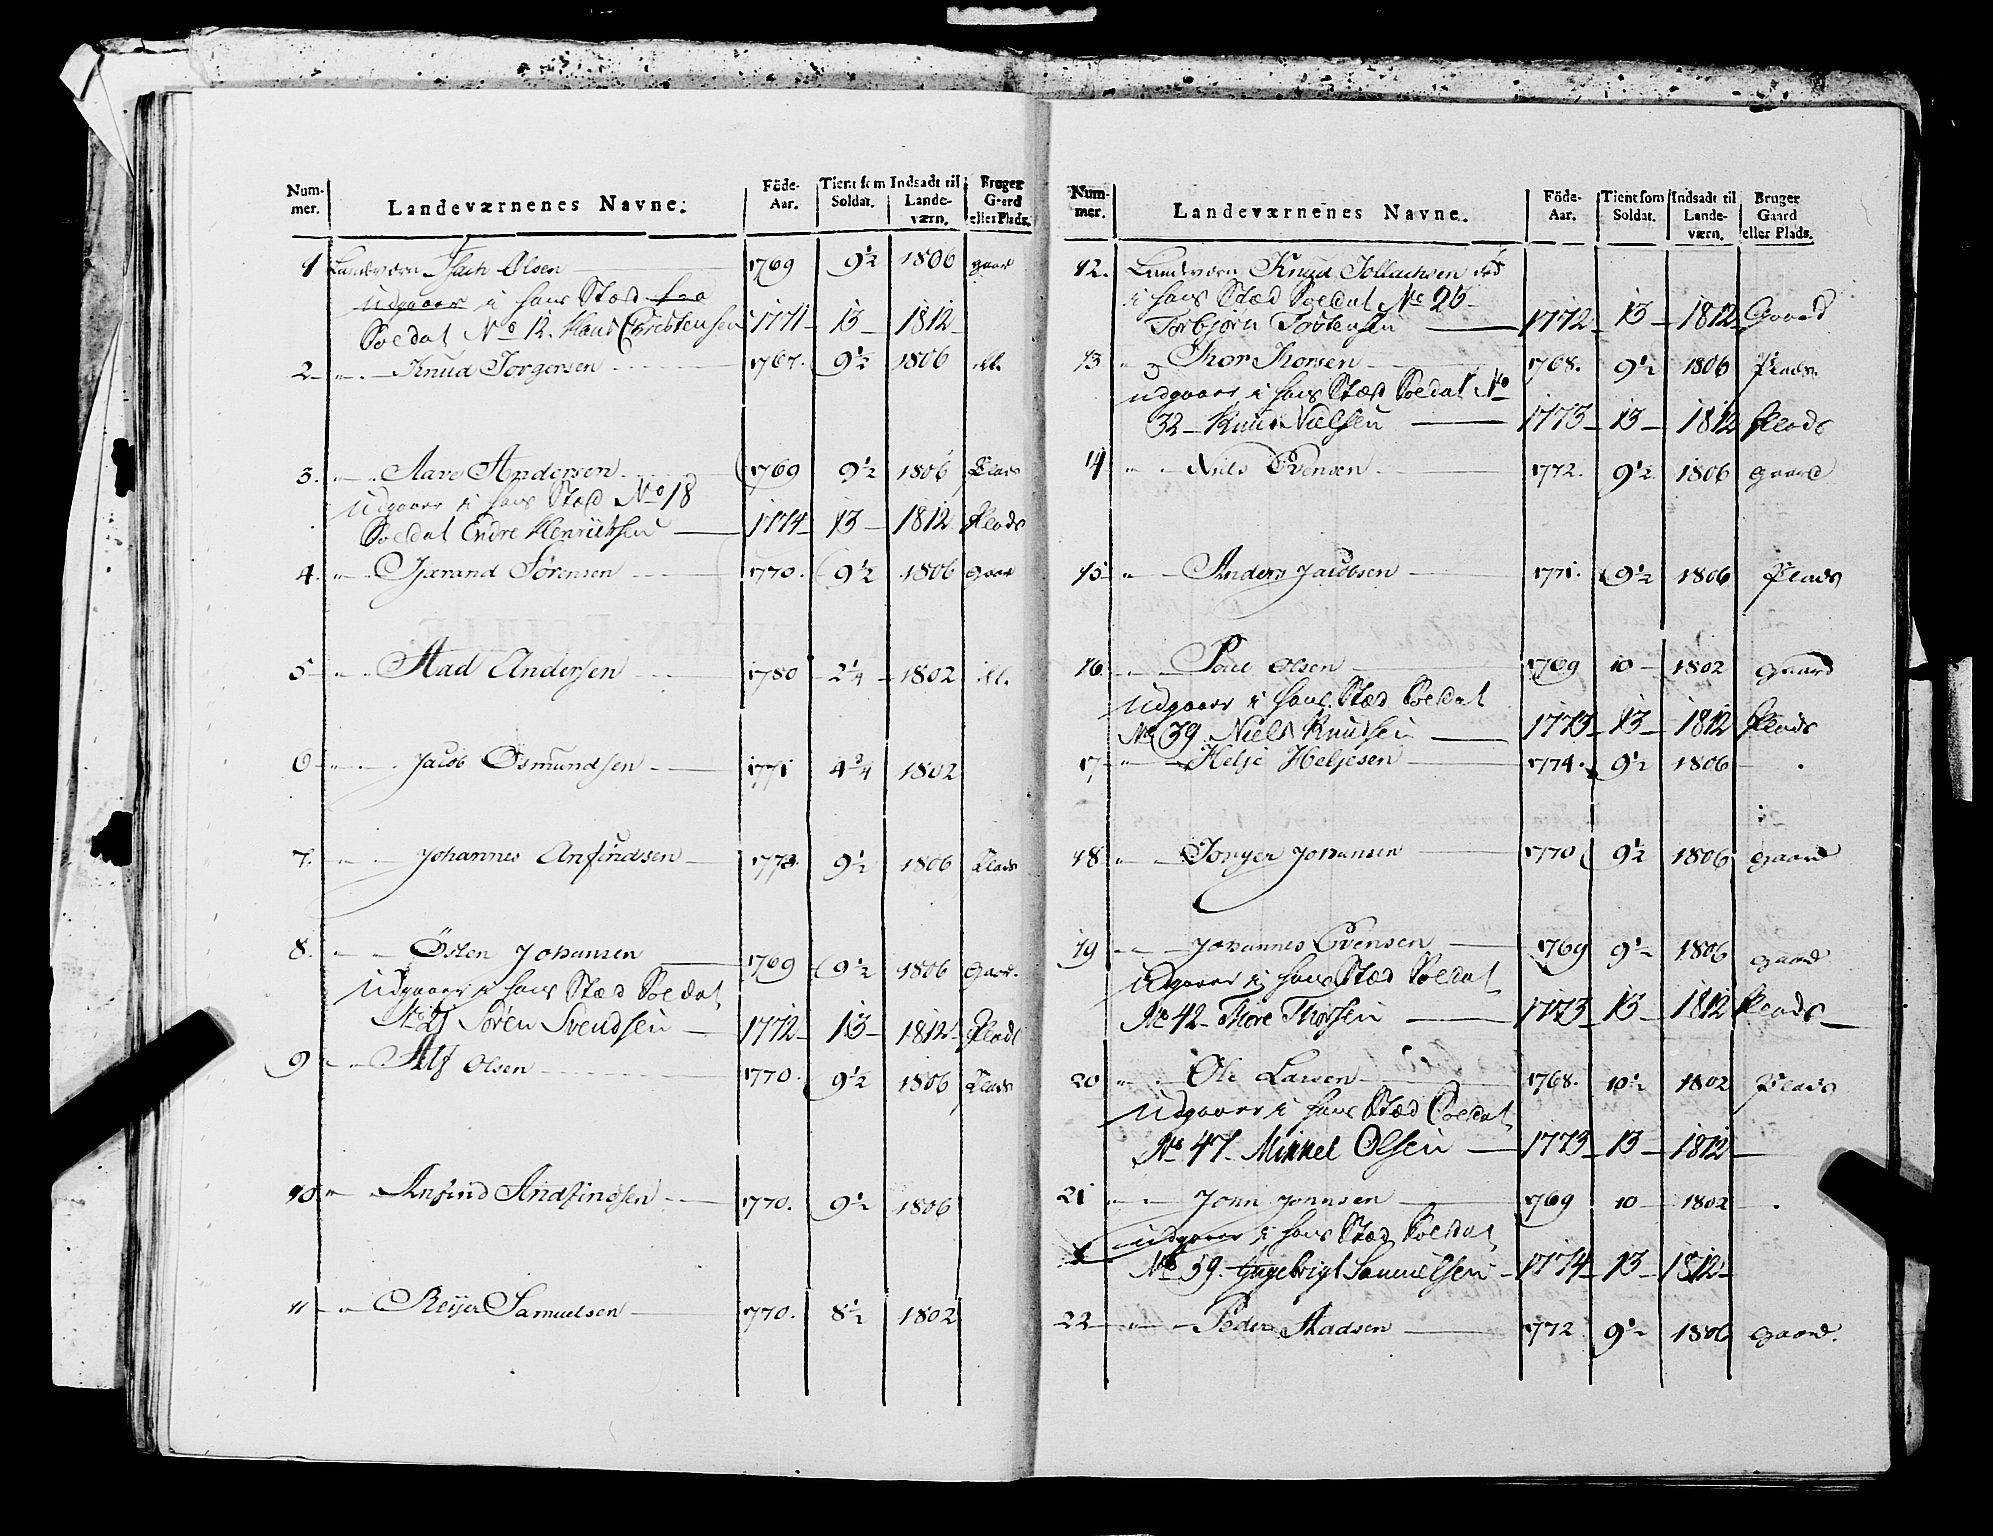 Num-mer. Landeværnenes Navne. Föde-Aar. Tient som Soldat. Indsadt til Lande-værn. Bruger Gaard eller Plads.
1 Landværn Isach Olsen 1769 9½ 1806 gaar
udgaaer i hans Stæd fra
Soldat No 12. Hans Christensen 1771 13 1812
2 " Knud Torgersen 1767. 9½ 1806 dl.
3. " Aave Andersen 1769 9½ 1806 Plads
udgaaer i hans Stæd No 18
Soldat Endre Henriksen 1774 13 1812 Plads
4. " Gjærand Sørensen 1770. 9½ 1806 gaar
5 " Aad Andersen 1780 2¼ 1802 dl.
6 " Jacob Osmundsen 1771 4¾ 1802
7. " Johannes Anfindsen 1773 9½ 1806 Plads
8. " Østen Johansen 1769 9½ 1806 gaar.
udgaaer i hans Stæd Soldat
No 21 Sören Svendsen 1772 13 1812 Plads
9 " Alf Olsen 1770. 9½ 1806 Plads
10 " Anfind Andfindsen 1770. 9½ 1806
11 " Reijer Samuelsen 1770. 8½ 1802
Num-mer. Landeværnenes Navne. Föde-Aar. Tient som Soldat. Indsadt til Lande-værn. Bruger Gaard eller Plads.
12. Landværn Knud Tollachsen
i hans Stæd Soldat No 25
Torbjörn Tostensen 1772 13 1812 Gaard
13 " Thor Thorsen 1768. 9½ 1806 Plads.
udgaaer i hans Stæd Soldat No
32 Knud Nielsen 1773 13 1812 Plads
14 " Niels Evensen 1772. 9½ 1806 gaard
15 " Anders Jacobsen 1771. 9½ 1806 Plads
16 " Poul Olsen 1769 10 1802 gaard
udgaaer i hans Stæd Soldat
No 39 Niels Knudsen 1773 13 1812 Plads
17 " Helje Heljesen 1774. 9½ 1806
18 " Torger Johansen 1770 9½ 1806 gaard
19 " Johannes Evensen 1769 9½ 1806 gaard
udgaaer i hans Stæd Soldat
No 42 Thore Thorsen 1773 13 1812 Plads
20 " Ole Larsen 1768. 10½ 1802 Plads
udgaaer i hans Stæd Soldat
No 47 Mikkel Olsen 1773 13 1812
21 " John Johnsen 1769 10 1802
udgaaer i hans Stæd Soldat
No 59. Ingebrigt Samuelsen 1774 13 1812
22 " Peder Aadsen 1772 9½ 1806 gaard.